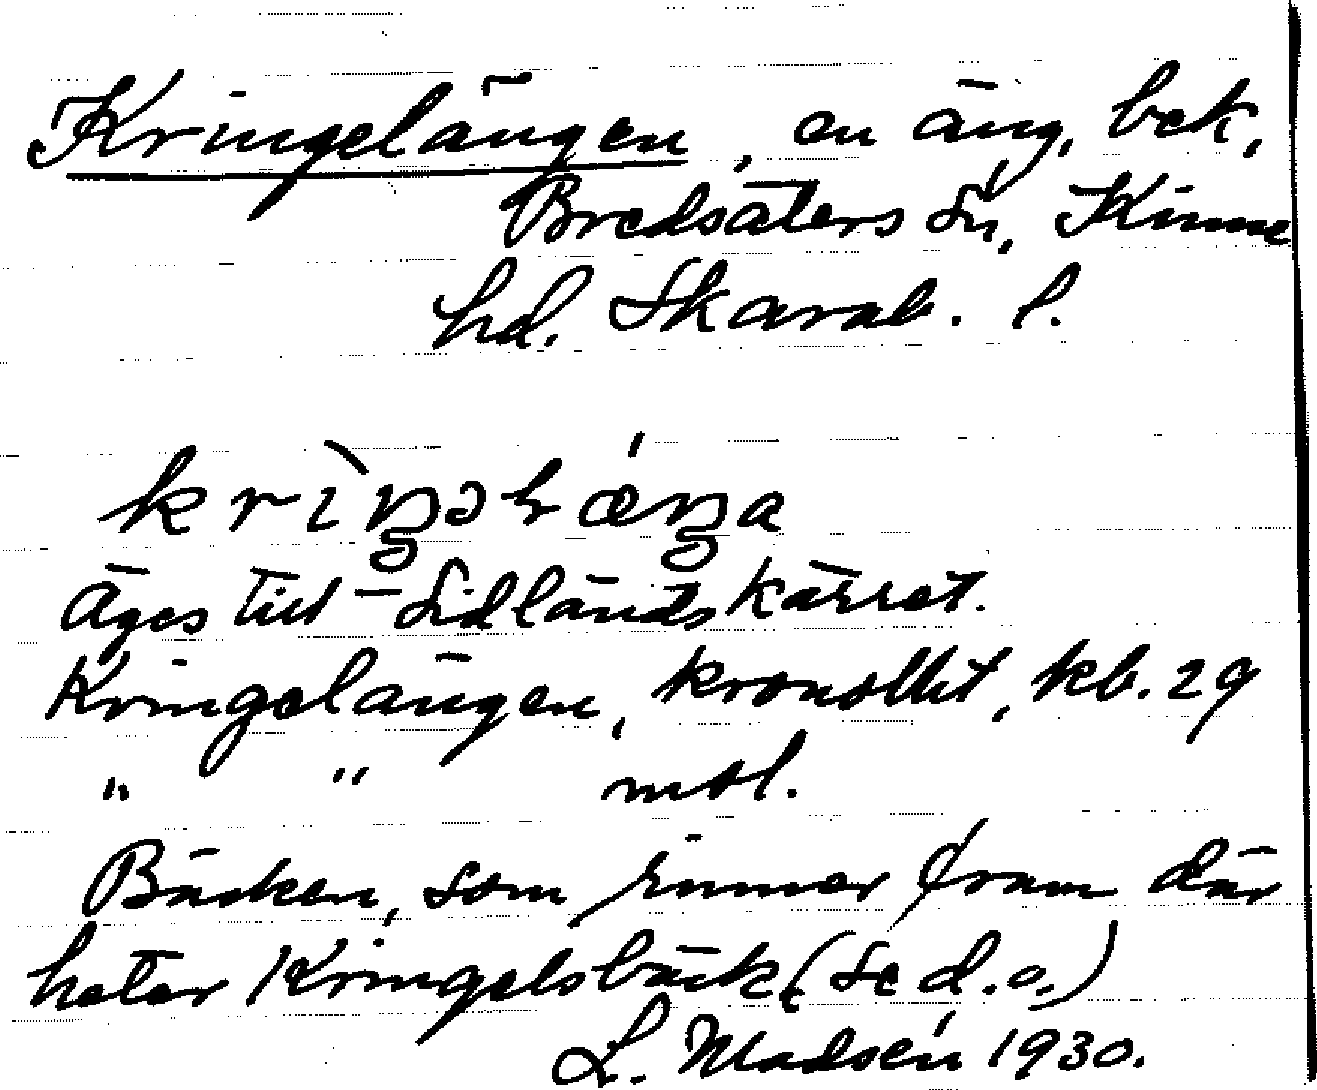 Kringelängen, en äng, bek,
Bredsäters sn, Kinne
hd. Skarab. l.
krìŋəlæ´ŋa
Äges till Sidländskärret.
Kringelängen, kronollit, kb. 29
" " mtl.
Bäcken, som rinner fram där
heter Kringelsbäck (se d.o.)
L. Madsén 1930.